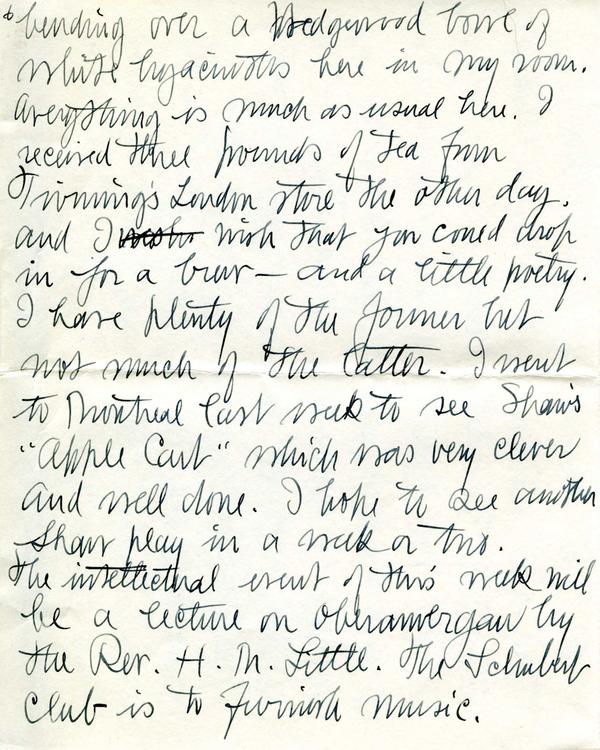 bending over a Wedgewood bowl of
white hyacinths here in my room.
Everything is much as usual here. I
received three pounds of tea from
Twinning's London store the other day.
and I wish that you could drop
in for a brew — and a little poetry.
I have plenty of the former but
not much of the latter. I went
to Montreal last week to see Shaw's
"Apple Cart" which was very clever
and well done. I hope to see another
Shaw play in a week or two.
The intellectual event of this week will
be a lecture on Oberamergau by
the Rev. H. M. Little. The Schubert
Club is to furnish music.